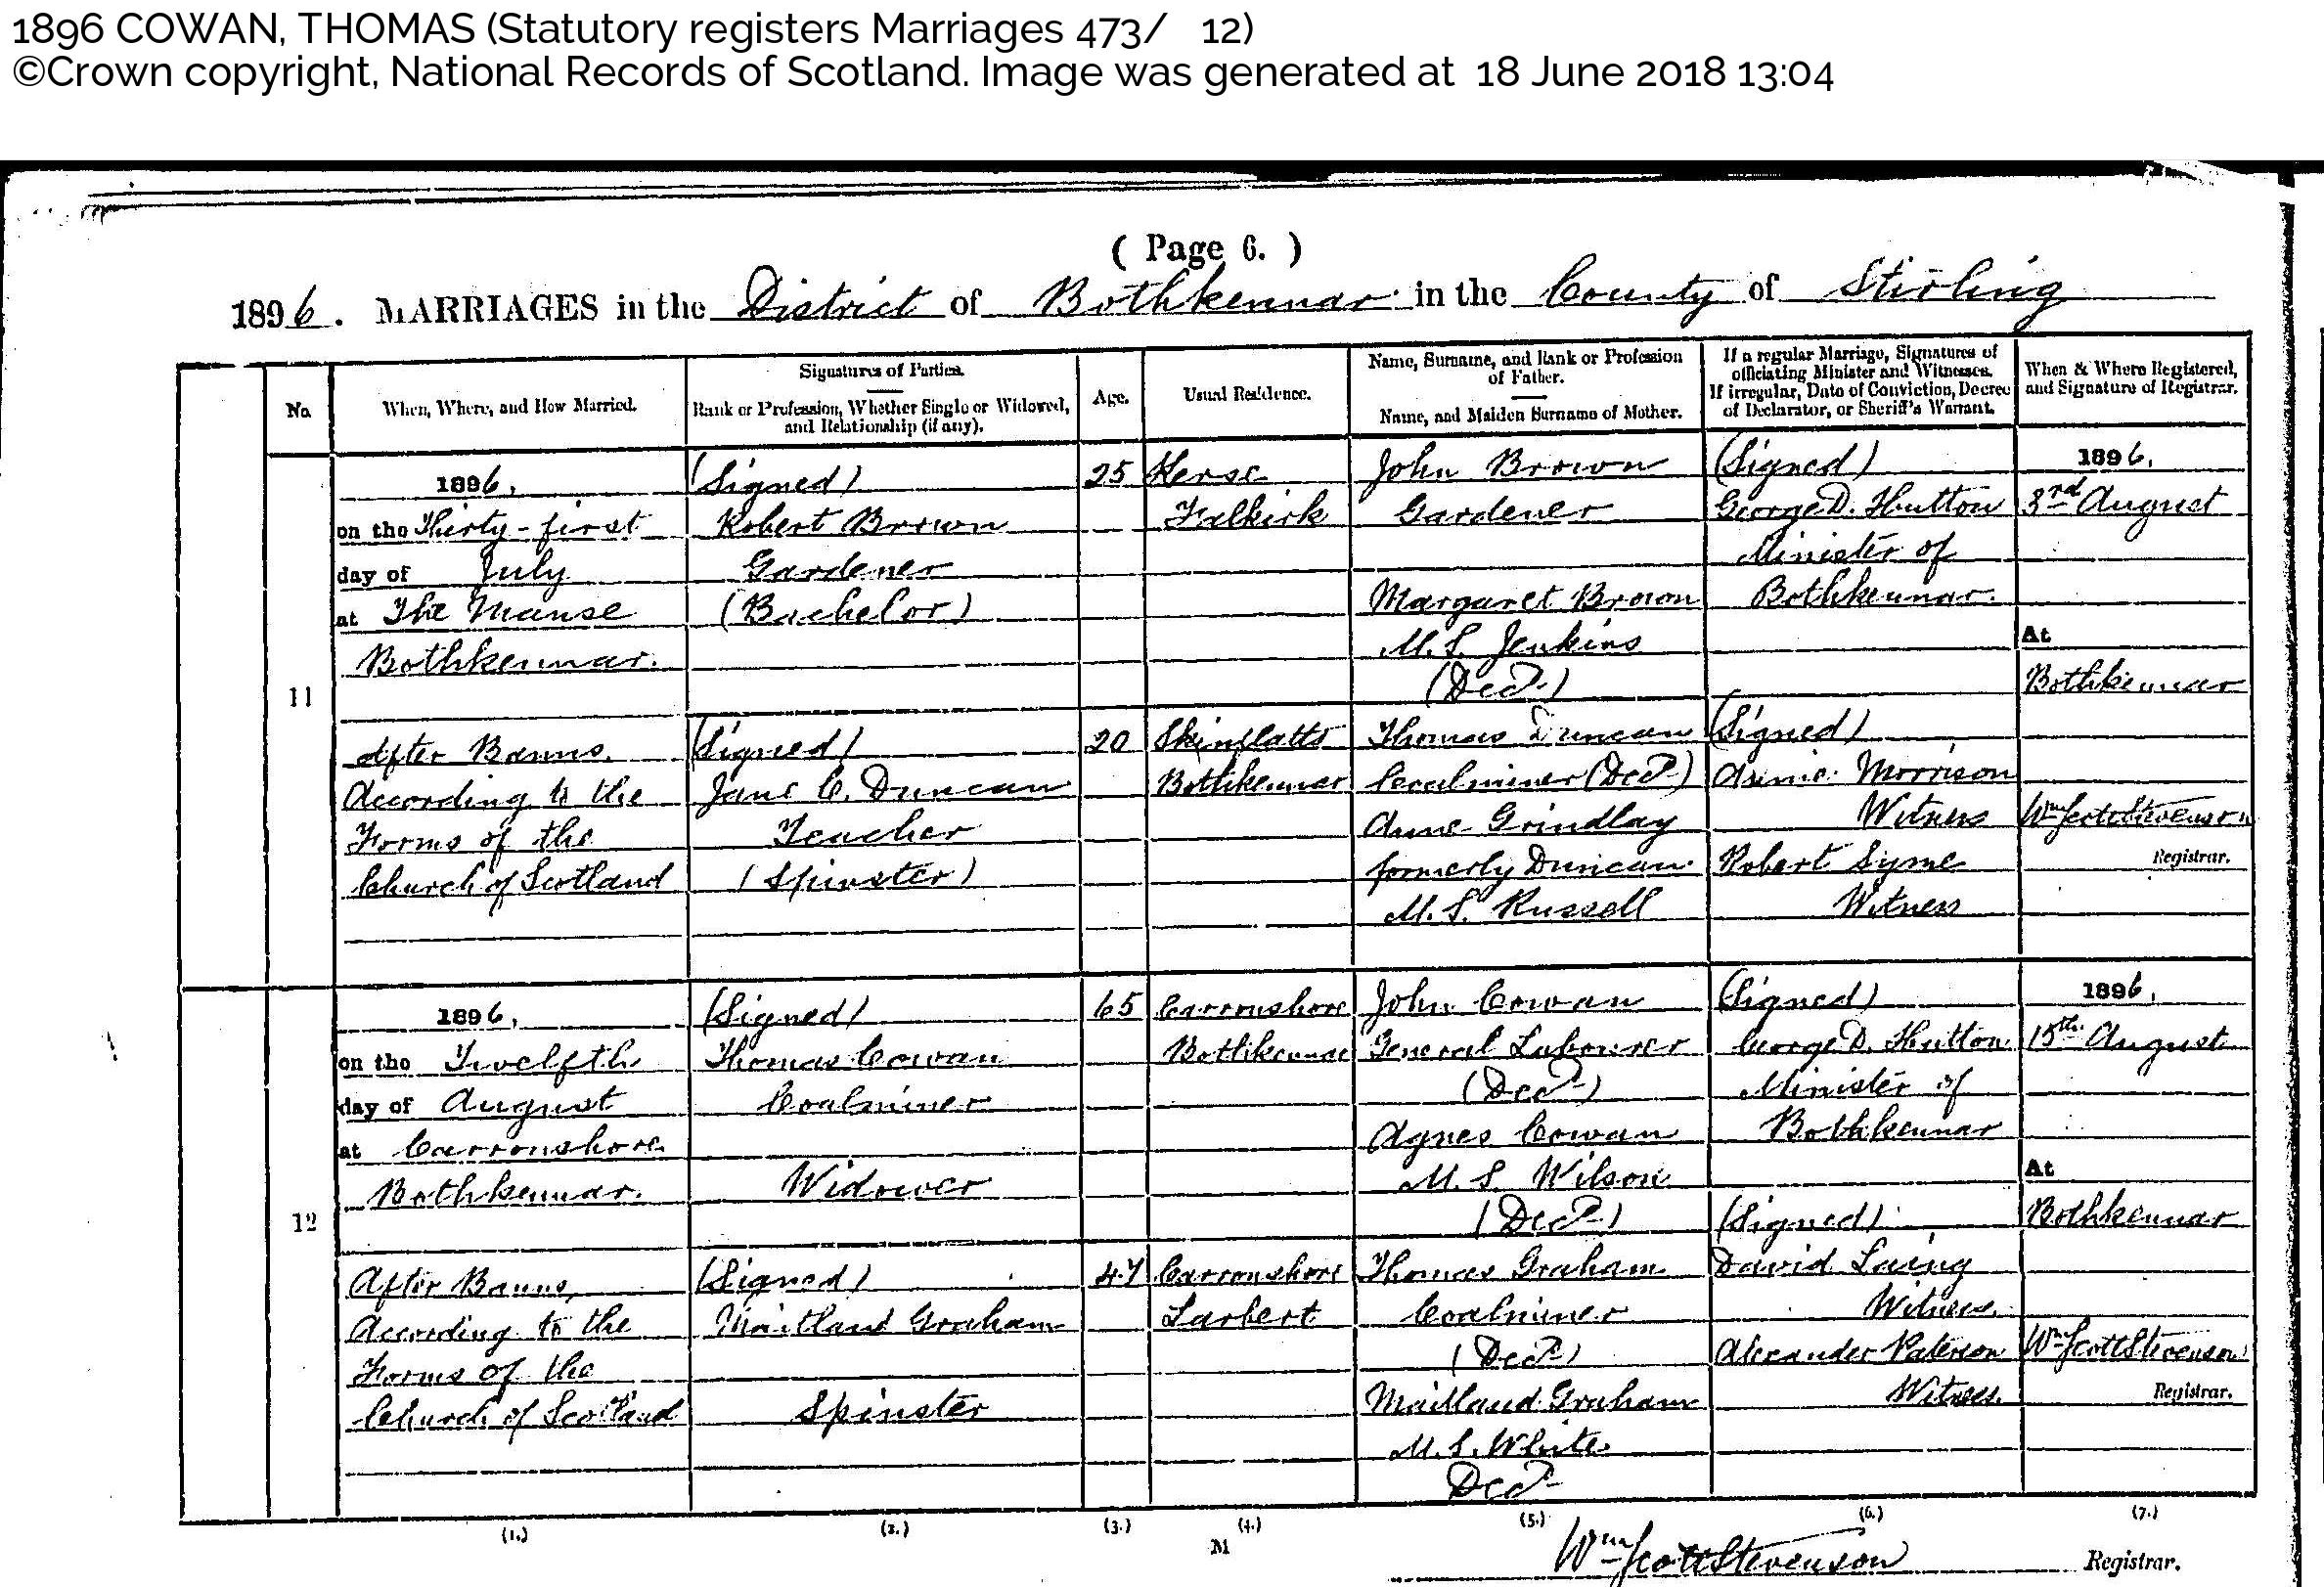 1896 COWAN, THOMAS (Statutory registers Marriages 473/ 12)
©Crown copyright, National Records of Scotland. Image was generated at 18 June 2018 13:04
( Page 6. )
1896. MARRIAGES in the District of Bothkennar in the County of Stirling
No.
When, Where, and How Married.
Signatures of Parties.
Rank or Profession, Whether Single or Widowed,
and Relationship (if any).
Age.
Usual Residence.
Name, Surname, and Rank or Profession
of Father.
Name, and Maiden Surname of Mother.
If a regular Marriage, Signatures of
officiating Minister and Witnesses.
If irregular, Date of Conviction, Decree
of Declarator, or Sheriff's Warrant.
When & Where Registered,
and Signature of Registrar.
11
1896.
on the Thirty-first
day of July
at The Manse
Bothkennar.
After Banns.
According to the
Forms of the
Church of Scotland
(Signed)
Robert Brown
Gardener
(Bachelor)
(Signed)
Jane C. Duncan
Teacher
(Spinster)
25
20
Kerse
Falkirk
Skinflatts
Bothkennar
John Brown
Gardener
Margaret Brown
M.S. Jenkins
(Decd.)
Thomas Duncan
Coalminer (Decd.)
Anne Grindlay
formerly Duncan
M.S. Russell
(Signed)
George D. Hutton
Minister of
Bothkennar.
(Signed)
Morrison
Witness
Robert Syme
Witness
1896.
3rd August
At
Bothkennar
Wm Scott Stevenson
Registrar.
12
1896.
on the Twelfth
day of August
at Carronshore
Bothkennar.
After Banns,
According to the
Forms of the
Church of Scotland
(Signed)
Thomas Cowan
Coalminer
Widower
(Signed)
Maitland Graham
Spinster
65
47
Carronshore
Bothkennar
Carronshore
Larbert
John Cowan
General Labourer
(Decd.)
Agnes Cowan
M.S. Wilson
(Decd.)
Thomas Graham
Coalminer
(Decd.)
Maitland Graham
M.S. White
Decd.
(Signed)
George D. Hutton
Minister of
Bothkennar
(Signed)
David Laing
Witness.
Alexander Paterson
Witness.
1896.
15th August
At
Bothkennar
Wm Scott Stevenson
Registrar.
(1.) (2.) (3.) (4.) (5.) (6.) (7.)
M
Wm Scott Stevenson Registrar.